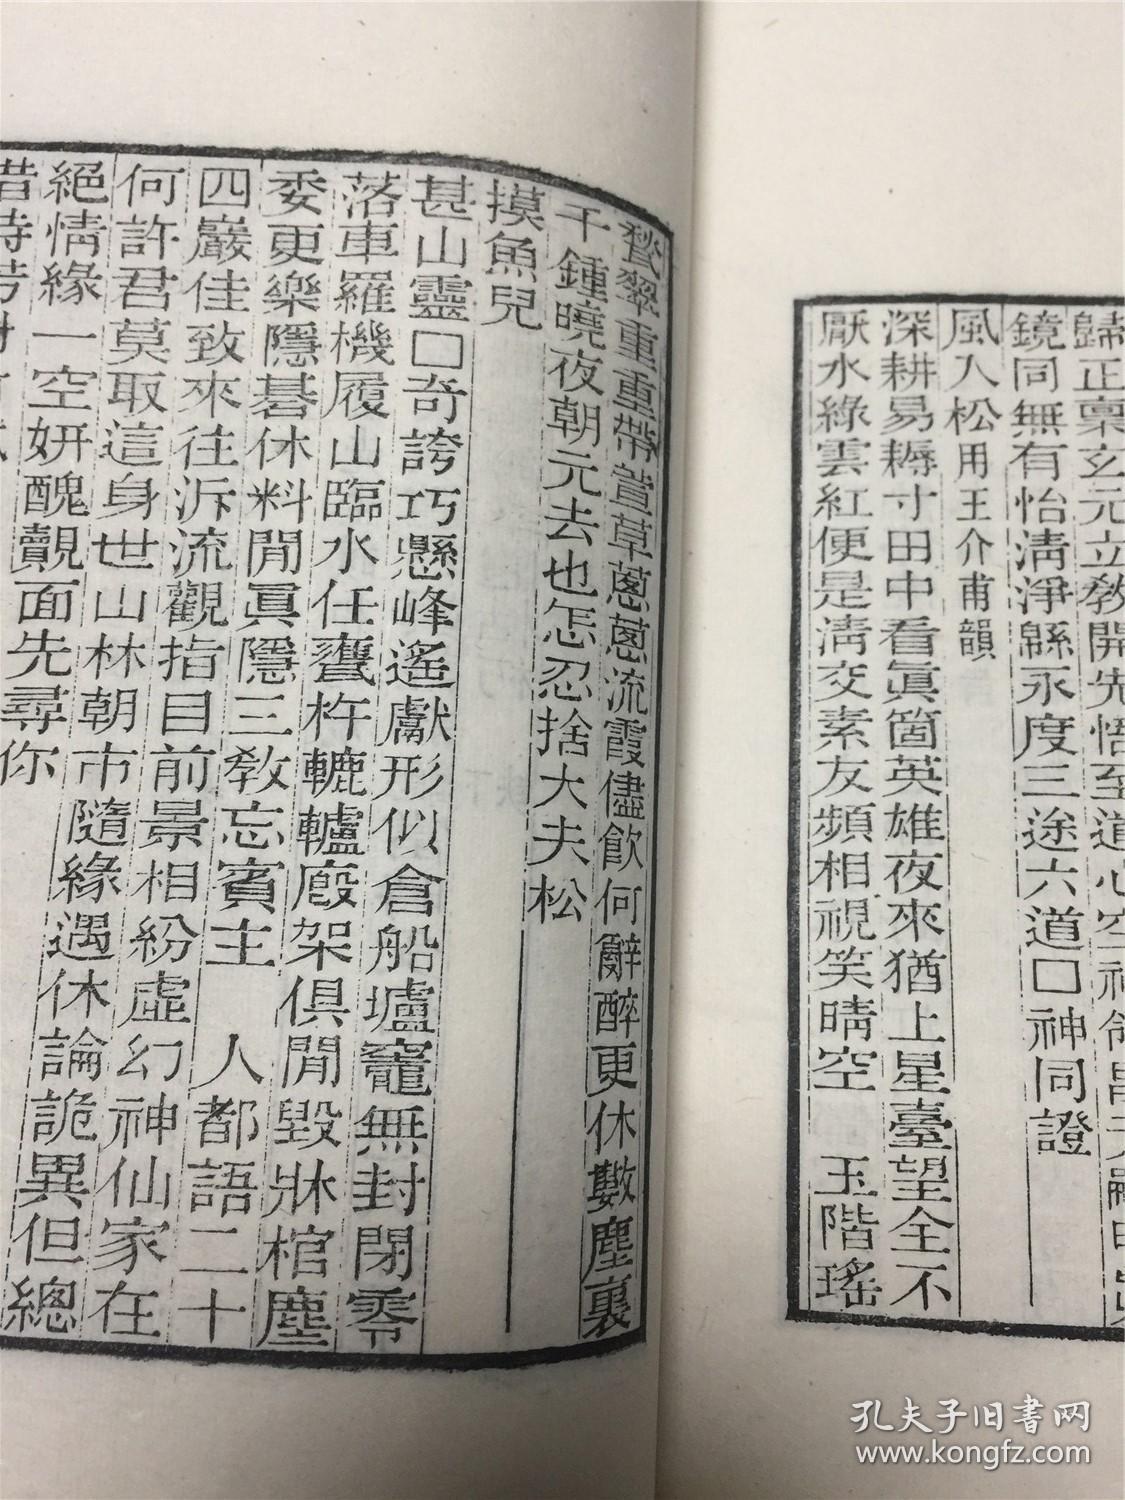 歸正稟玄元立教開先悟至道心空
鏡同無有怡清淨緜永度三途六道□神同證
風入松用王介甫韻
深耕易耨寸田中看眞箇英雄夜來猶上星臺望全不
厭水綠雲紅便是淸交素友頻相視笑晴空　玉階瑤
翠重重帶萱草蔥蔥流霞儘飮何辭醉更休數塵裏
千鍾曉夜朝元去也怎忍捨大夫松
摸魚兒
甚山靈□奇誇巧懸峰遙獻形似倉船壚竈無封閉零
落車羅機履山臨水任甕杵轆轤廏架俱閒毀牀棺塵
委更樂隱碁休料閒眞隱三敎忘賓主　人都語二十
四巖佳致來往泝流觀指目前景相紛虛幻神仙家在
何許君莫取這身世山林朝市隨緣遇休論詭異但總
絕情緣一空妍醜覿面先尋你
昔時
孔夫子旧書网
www.kongfz.com